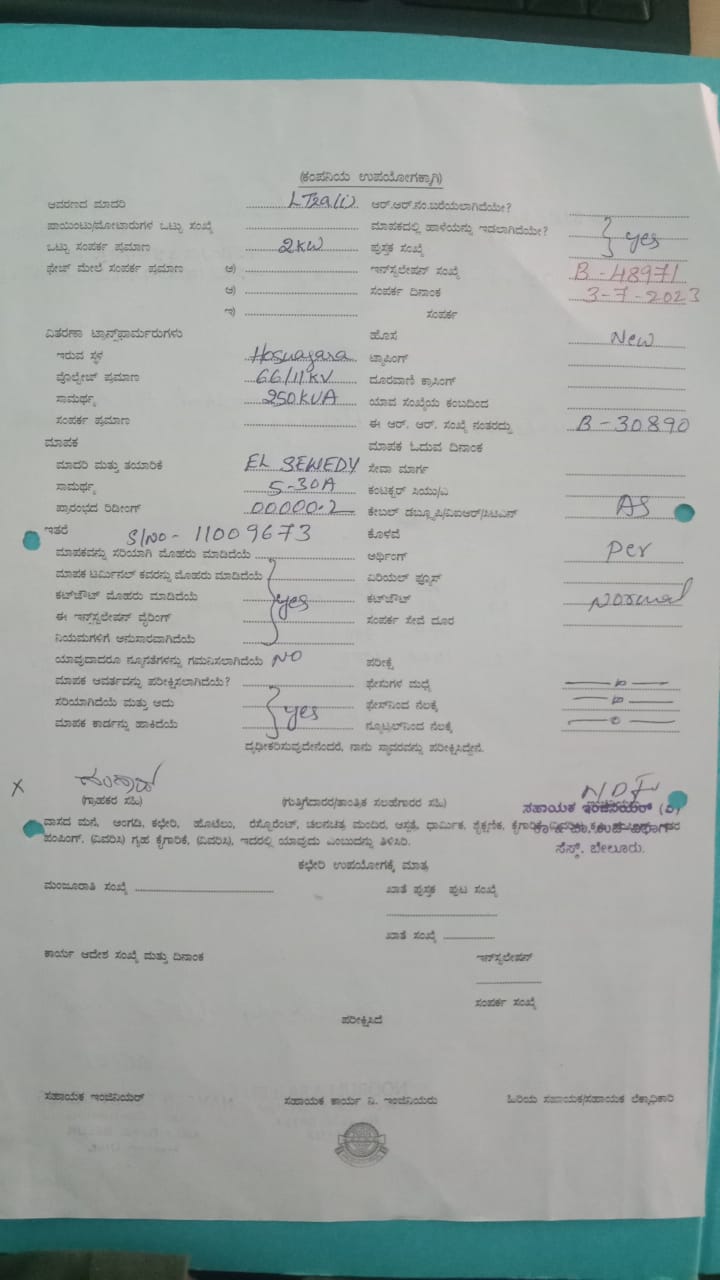 (ಕಂಪನಿಯ ಉಪಯೋಗಕ್ಕಾಗಿ)
ಆವರಣದ ಮಾದರಿ LT2a(i) ಆರ್.ಆರ್.ನಂ.ಬರೆಯಲಾಗಿದೆಯೇ?
ಪಾಯಿಂಟು/ಮೋಟಾರುಗಳ ಒಟ್ಟು ಸಂಖ್ಯೆ ಮಾಪಕದಲ್ಲಿ ಹಾಳೆಯನ್ನು ಇಡಲಾಗಿದೆಯೇ? yes
ಒಟ್ಟು ಸಂಪರ್ಕ ಪ್ರಮಾಣ 2KW ಪುಸ್ತಕ ಸಂಖ್ಯೆ
ಫೇಜ್ ಮೇಲೆ ಸಂಪರ್ಕ ಪ್ರಮಾಣ ಅ) ಇನ್‌ಸ್ಟಲೇಷನ್ ಸಂಖ್ಯೆ B-48971
ಆ) ಸಂಪರ್ಕ ದಿನಾಂಕ 3-7-2023
ಇ) ಸಂಪರ್ಕ
ವಿತರಣಾ ಟ್ರಾನ್ಸ್‌ಫಾರ್ಮರುಗಳು ಹೊಸ New
ಇರುವ ಸ್ಥಳ Hosnagara ಟ್ಯಾಪಿಂಗ್
ವೋಲ್ಟೇಜ್ ಪ್ರಮಾಣ 66/11KV ದೂರವಾಣಿ ಕ್ರಾಸಿಂಗ್
ಸಾಮರ್ಥ್ಯ 250KVA ಯಾವ ಸಂಖ್ಯೆಯ ಕಂಬದಿಂದ
ಸಂಪರ್ಕ ಪ್ರಮಾಣ ಈ ಆರ್. ಆರ್. ಸಂಖ್ಯೆ ನಂತರದ್ದು B-30890
ಮಾಪಕ ಮಾಪಕ ಓದುವ ದಿನಾಂಕ
ಮಾದರಿ ಮತ್ತು ತಯಾರಿಕೆ EL SEWEDY ಸೇವಾ ಮಾರ್ಗ
ಸಾಮರ್ಥ್ಯ 5-30A ಕಂಟಕ್ಟರ್ ಸಿಯು/ಎ
ಪ್ರಾರಂಭದ ರಿಡೀಂಗ್ 00000.2 ಕೇಬಲ್ ಡಬ್ಲ್ಯೂಪಿ/ವಿಐಆರ್/ಸಿಟಿಎಸ್ AS
ಇತರೆ S/No - 11009673 ಕೊಳವೆ
ಮಾಪಕವನ್ನು ಸರಿಯಾಗಿ ಮೊಹರು ಮಾಡಿದೆಯೆ ಅರ್ಥಿಂಗ್ Per
ಮಾಪಕ ಟರ್ಮಿನಲ್ ಕವರನ್ನು ಮೊಹರು ಮಾಡಿದೆಯೆ ಏರಿಯಲ್ ಫ್ಯೂಸ್
ಕಟ್‌ಔಟ್ ಮೊಹರು ಮಾಡಿದೆಯೆ yes ಕಟ್‌ಔಟ್ Normal
ಈ ಇನ್‌ಸ್ಟಲೇಷನ್ ವೈರಿಂಗ್ ಸಂಪರ್ಕ ಸೇವೆ ದೂರ
ನಿಯಮಗಳಿಗೆ ಅನುಸಾರವಾಗಿದೆಯೆ
ಯಾವುದಾದರೂ ನ್ಯೂನತೆಗಳನ್ನು ಗಮನಿಸಲಾಗಿದೆಯೆ NO ಪರೀಕ್ಷೆ
ಮಾಪಕ ಆವರ್ತವನ್ನು ಪರೀಕ್ಷಿಸಲಾಗಿದೆಯೆ? ಫೇಸುಗಳ ಮಧ್ಯೆ
ಸರಿಯಾಗಿದೆಯೆ ಮತ್ತು ಅದು yes ಫೇಸ್‌ನಿಂದ ನೆಲಕ್ಕೆ
ಮಾಪಕ ಕಾರ್ಡನ್ನು ಹಾಕಿದೆಯೆ ನ್ಯೂಟ್ರಲ್‌ನಿಂದ ನೆಲಕ್ಕೆ
ದೃಢೀಕರಿಸುವುದೇನೆಂದರೆ, ನಾನು ಸ್ಥಾವರವನ್ನು ಪರೀಕ್ಷಿಸಿದ್ದೇನೆ.
X
(ಗ್ರಾಹಕರ ಸಹಿ) (ಗುತ್ತಿಗೆದಾರರ/ತಾಂತ್ರಿಕ ಸಲಹೆಗಾರರ ಸಹಿ) ಸಹಾಯಕ ಇಂಜಿನಿಯರ್ (ವಿ)
ವಾಸದ ಮನೆ, ಅಂಗಡಿ, ಕಛೇರಿ, ಹೊಟೆಲು, ರೆಸ್ಟೊರೆಂಟ್, ಚಲನಚಿತ್ರ ಮಂದಿರ, ಆಸ್ಪತ್ರೆ, ಧಾರ್ಮಿಕ, ಶೈಕ್ಷಣಿಕ, ಕೈಗಾರಿಕೆ
ಪಂಪಿಂಗ್. (ವಿವರಿಸಿ) ಗೃಹ ಕೈಗಾರಿಕೆ, (ವಿವರಿಸಿ), ಇದರಲ್ಲಿ ಯಾವುದು ಎಂಬುದನ್ನು ತಿಳಿಸಿರಿ. ಸೆಸ್ಕ್, ಬೇಲೂರು.
ಕಛೇರಿ ಉಪಯೋಗಕ್ಕೆ ಮಾತ್ರ
ಮಂಜೂರಾತಿ ಸಂಖ್ಯೆ ಖಾತೆ ಪುಸ್ತಕ ಪುಟ ಸಂಖ್ಯೆ
ಖಾತೆ ಸಂಖ್ಯೆ
ಕಾರ್ಯ ಆದೇಶ ಸಂಖ್ಯೆ ಮತ್ತು ದಿನಾಂಕ ಇನ್‌ಸ್ಟಲೇಷನ್
ಸಂಪರ್ಕ ಸಂಖ್ಯೆ
ಪರೀಕ್ಷಿಸಿದೆ
ಸಹಾಯಕ ಇಂಜಿನಿಯರ್ ಸಹಾಯಕ ಕಾರ್ಯ ನಿ. ಇಂಜಿನಿಯರು ಹಿರಿಯ ಸಹಾಯಕ/ಸಹಾಯಕ ಲೆಕ್ಕಾಧಿಕಾರಿ